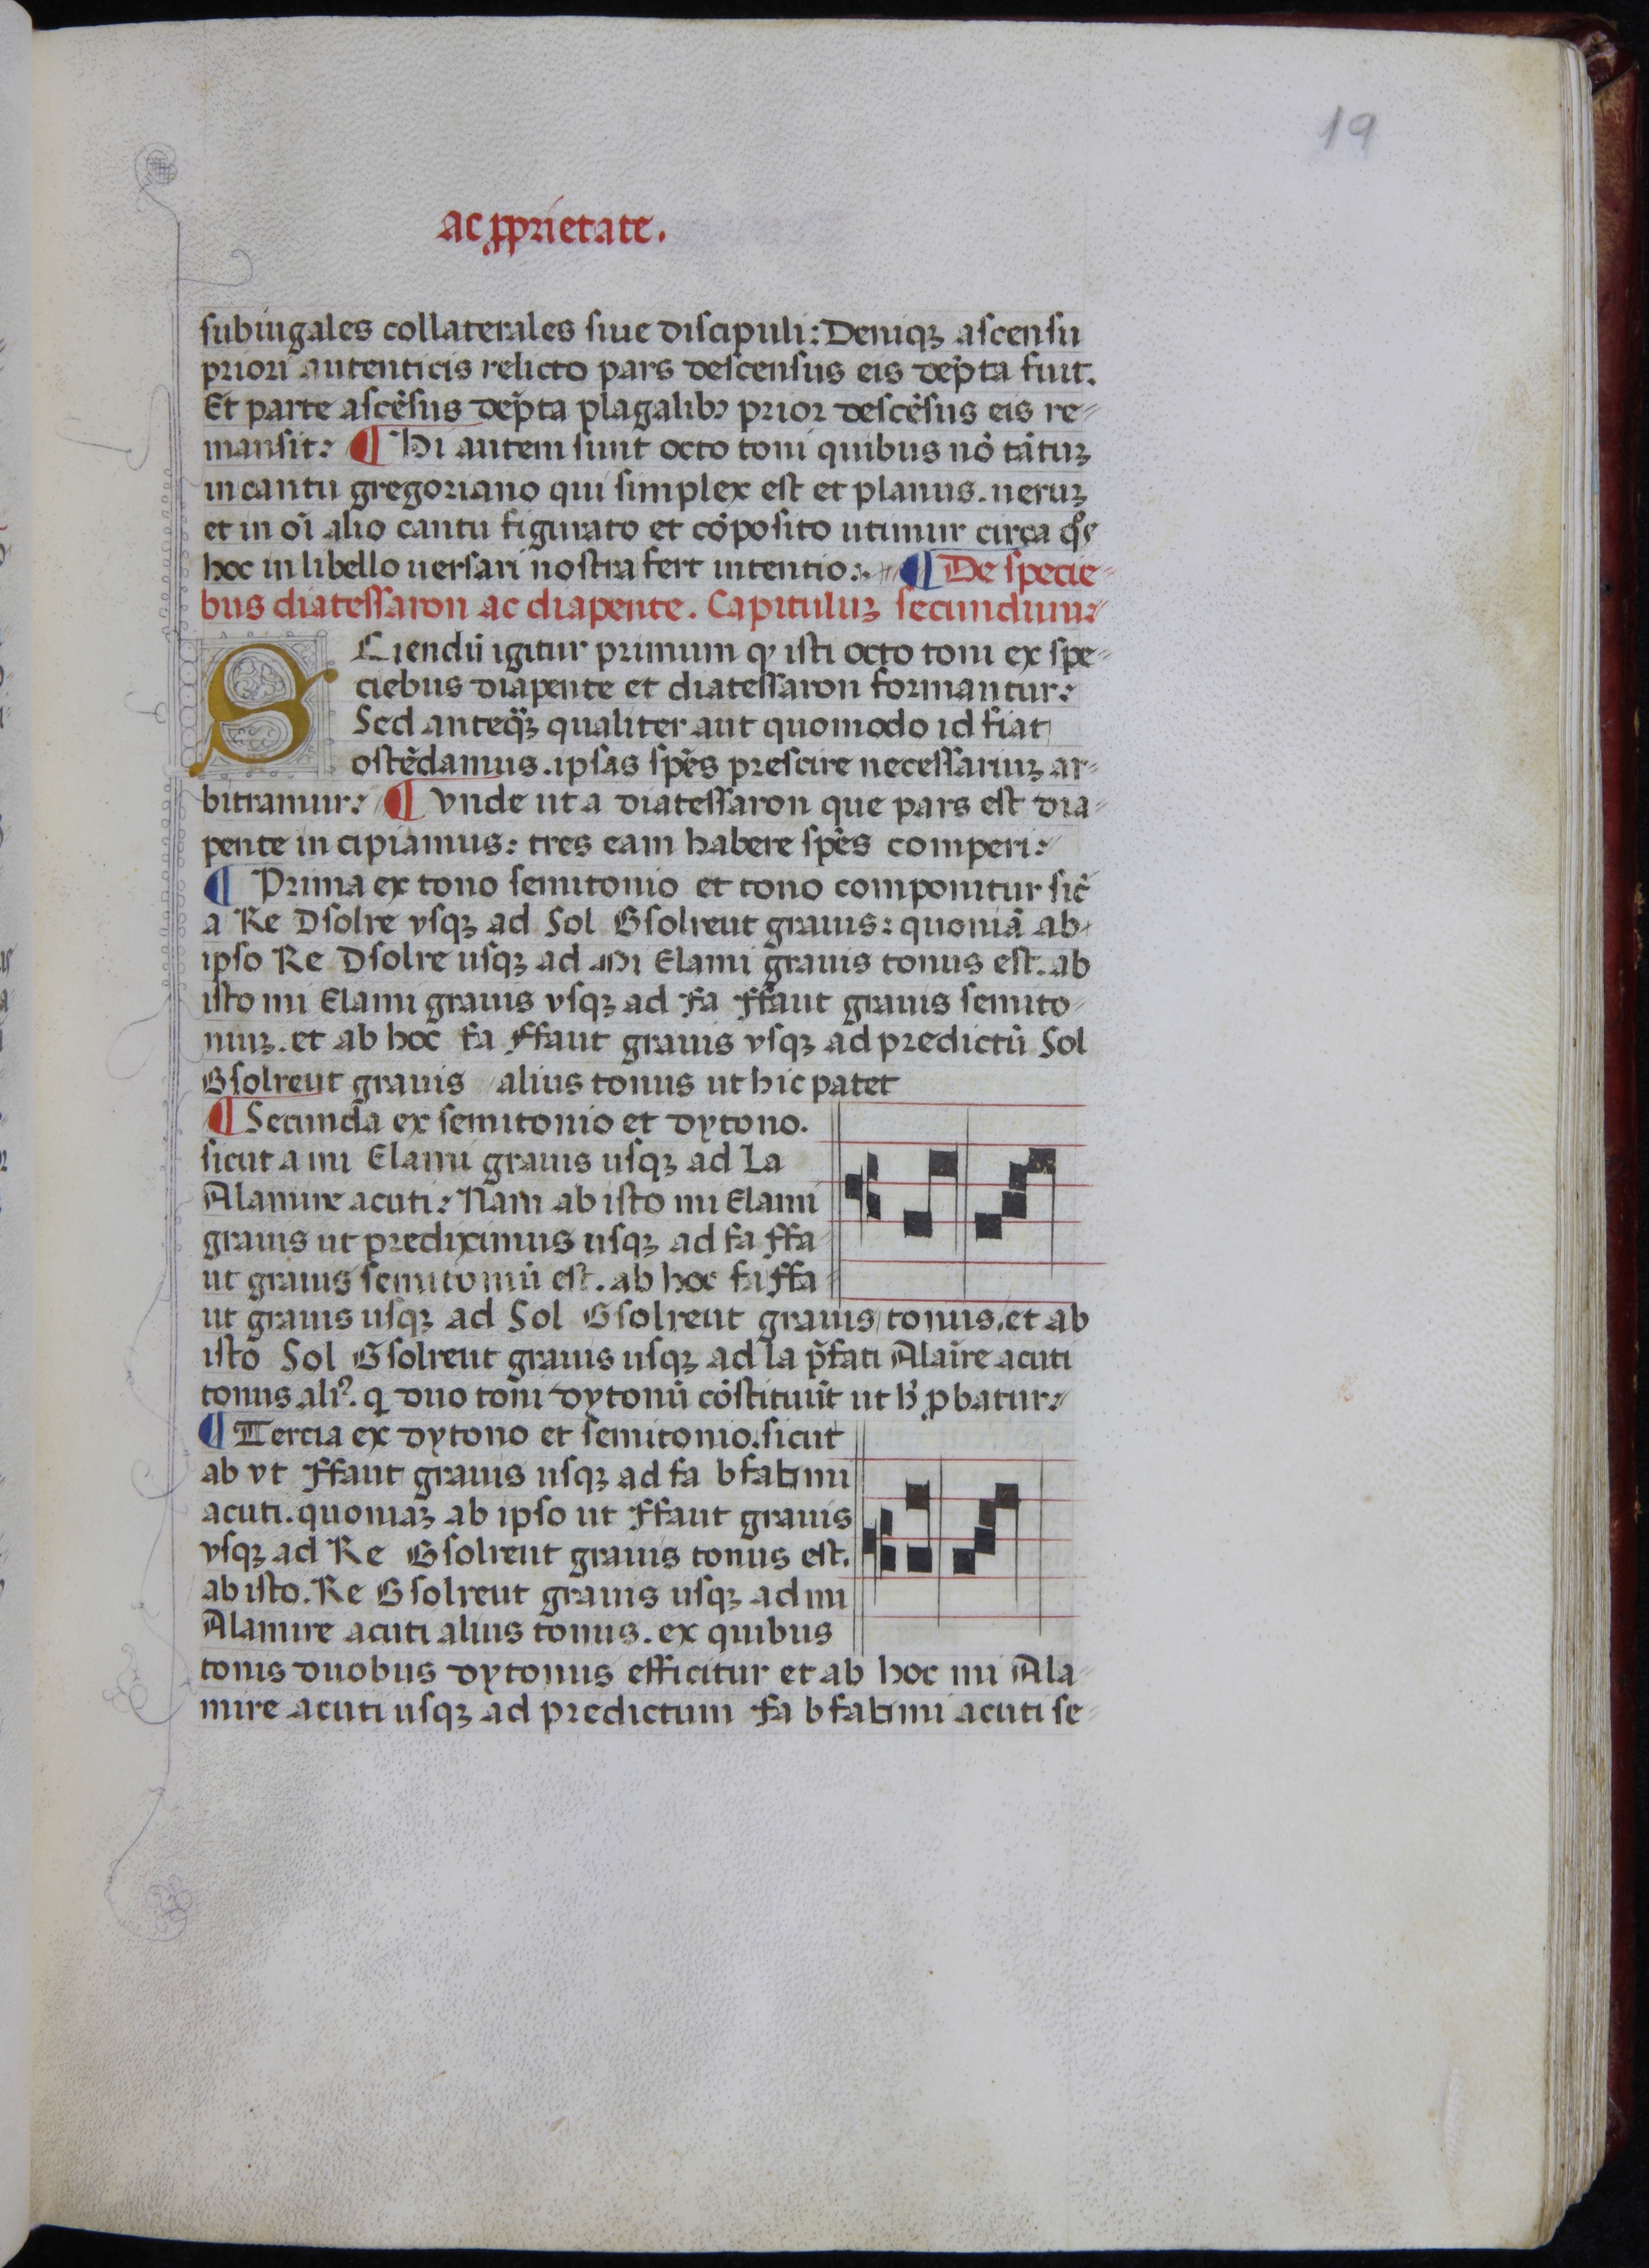 19
ac ꝓprietate.
subiugales collaterales siue discipuli: Deniqꝫ ascensu
priori autenticis relicto pars descensus eis dep̄ta fuit.
Et parte ascēsus dep̄ta plagalibꝫ prior descēsus eis re⸗
mansit: ¶ Hi autem sunt octo toni quibus nō tātuꝫ
in cantu gregoriano qui simplex est et planus. ueruꝫ
et in oī alio cantu figurato et cōposito utimur circa q̊s
hoc in libello uersari nostra fert intentio: ¶ De specie⸗
bus diatessaron ac diapente. Capituluꝫ secundum:
SCiendū igitur primum ꝙ isti octo toni ex spe⸗
ciebus diapente et diatessaron formantur:
Sed anteq̄ꝫ qualiter aut quomodo id fiat
ostēdamus. ipsas spēs prescire necessariuꝫ ar⸗
bitramur: ¶ Vnde ut a diatessaron que pars est dia⸗
pente incipiamus: tres eam habere spēs comperi:
¶ Prima ex tono semitonio et tono componitur sic̄
a Re Dsolre vsqꝫ ad Sol Gsolreut grauis: quoniā ab
ipso Re Dsolre usqꝫ ad Mi Elami grauis tonus est. ab
isto mi Elami grauis vsqꝫ ad Fa ffaut grauis semito⸗
niuꝫ. et ab hoc fa ffaut grauis vsqꝫ ad predictū Sol
Gsolreut grauis alius tonus ut hic patet
¶ Secunda ex semitonio et dytono.
sicut a mi Elami grauis usqꝫ ad La
Alamire acuti: Nam ab isto mi Elami
grauis ut prediximus usqꝫ ad fa ffa⸗
ut grauis semitoniū est. ab hoc fa ffa⸗
ut grauis usqꝫ ad Sol Gsolreut grauis tonus. et ab
isto Sol Gsolreut grauis usqꝫ ad la p̄fati Alam̄re acuti
tonus ali᾽. q̨ duo toni dytonū cōstituūt ut h̄ ꝓbatur:
¶ Tercia ex dytono et semitonio. sicut
ab vt ffaut grauis usqꝫ ad fa bfa♮mi
acuti. quoniaꝫ ab ipso ut ffaut grauis
vsqꝫ ad Re Gsolreut grauis tonus est.
ab isto. Re Gsolreut grauis usqꝫ ad mi
Alamire acuti alius tonus. ex quibus
tonis duobus dytonus efficitur et ab hoc mi Ala⸗
mire acuti usqꝫ ad predictum fa bfa♮mi acuti se⸗